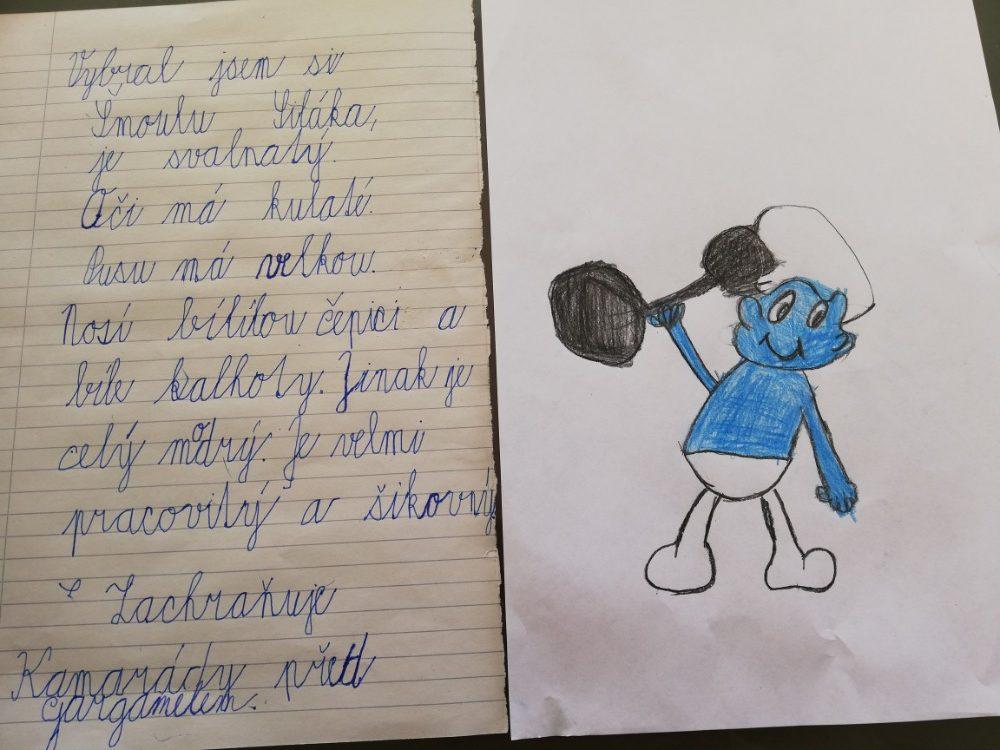 Vybral jsem si
Šmoulu Siláka,
je svalnatý.
Oči má kulaté.
Pusu má velkou.
Nosí bílílou čepici a
bíle kalhoty. Jinak je
celý modrý. Je velmi
pracovitý a šikovný
Zachraňuje
Kamarády před
gargamelem.